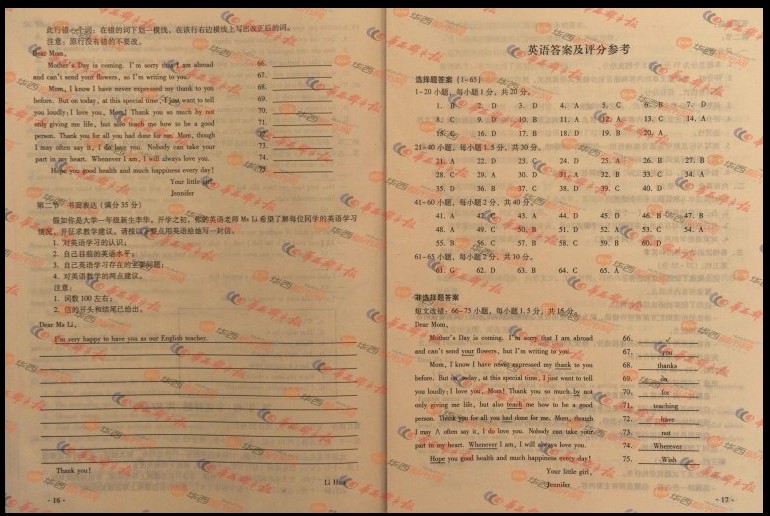 此行错一个词：在错的词下划一横线，在该行右边横线上写出改正后的词。
注意：原行没有错的不要改。
Dear Mom,
Mother's Day is coming. I'm sorry that I am abroad 66.
and can't send your flowers, so I'm writing to you. 67.
Mom, I know I have never expressed my thank to you 68.
before. But on today, at this special time, I just want to tell 69.
you loudly: I love you, Mom! Thank you so much by not 70.
only giving me life, but also teach me how to be a good 71.
person. Thank you for all you had done for me. Mom, though 72.
I may often say it, I do love you. Nobody can take your 73.
part in my heart. Whenever I am, I will always love you. 74.
Hope you good health and much happiness every day! 75.
Your little girl,
Jennifer
第二节 书面表达（满分35分）
假如你是大学一年级新生李华。开学之初，你的英语老师 Ms Li 希望了解每位同学的英语学习
情况，并征求教学建议。请按以下要点用英语给她写一封信。
1. 对英语学习的认识；
2. 自己目前的英语水平；
3. 自己英语学习存在的主要问题；
4. 对英语教学的两点建议。
注意：
1. 词数100左右；
2. 信的开头和结尾已给出。
Dear Ms Li,
I'm very happy to have you as our English teacher.
Thank you!
Li Hua
· 16 ·
英语答案及评分参考
选择题答案（1-65）
1-20小题，每小题1分，共20分。
1. B 2. D 3. D 4. A 5. C 6. B 7. D
8. C 9. D 10. B 11. A 12. A 13. C 14. A
15. C 16. D 17. B 18. D 19. B 20. A
21-40小题，每小题1.5分，共30分。
21. A 22. D 23. C 24. D 25. A 26. B 27. B
28. C 29. A 30. D 31. A 32. B 33. C 34. A
35. D 36. B 37. C 38. D 39. C 40. D
41-60小题，每小题2分，共40分。
41. A 42. C 43. A 44. D 45. D 46. B 47. B
48. A 49. C 50. B 51. D 52. A 53. C 54. A
55. B 56. C 57. B 58. C 59. B 60. D
61-65小题，每小题2分，共10分。
61. G 62. D 63. B 64. C 65. A
非选择题答案
短文改错：66-75小题，每小题1.5分，共15分。
Dear Mom,
Mother's Day is coming. I'm sorry that I am abroad 66. √
and can't send your flowers, but I'm writing to you. 67. you
Mom, I know I have never expressed my thank to you 68. thanks
before. But on today, at this special time, I just want to tell 69. on
you loudly: I love you, Mom! Thank you so much by not 70. for
only giving me life, but also teach me how to be a good 71. teaching
person. Thank you for all you had done for me. Mom, though 72. have
I may ∧ often say it, I do love you. Nobody can take your 73. not
part in my heart. Whenever I am, I will always love you. 74. Wherever
Hope you good health and much happiness every day! 75. Wish
Your little girl,
Jennifer
· 17 ·
华西都市报